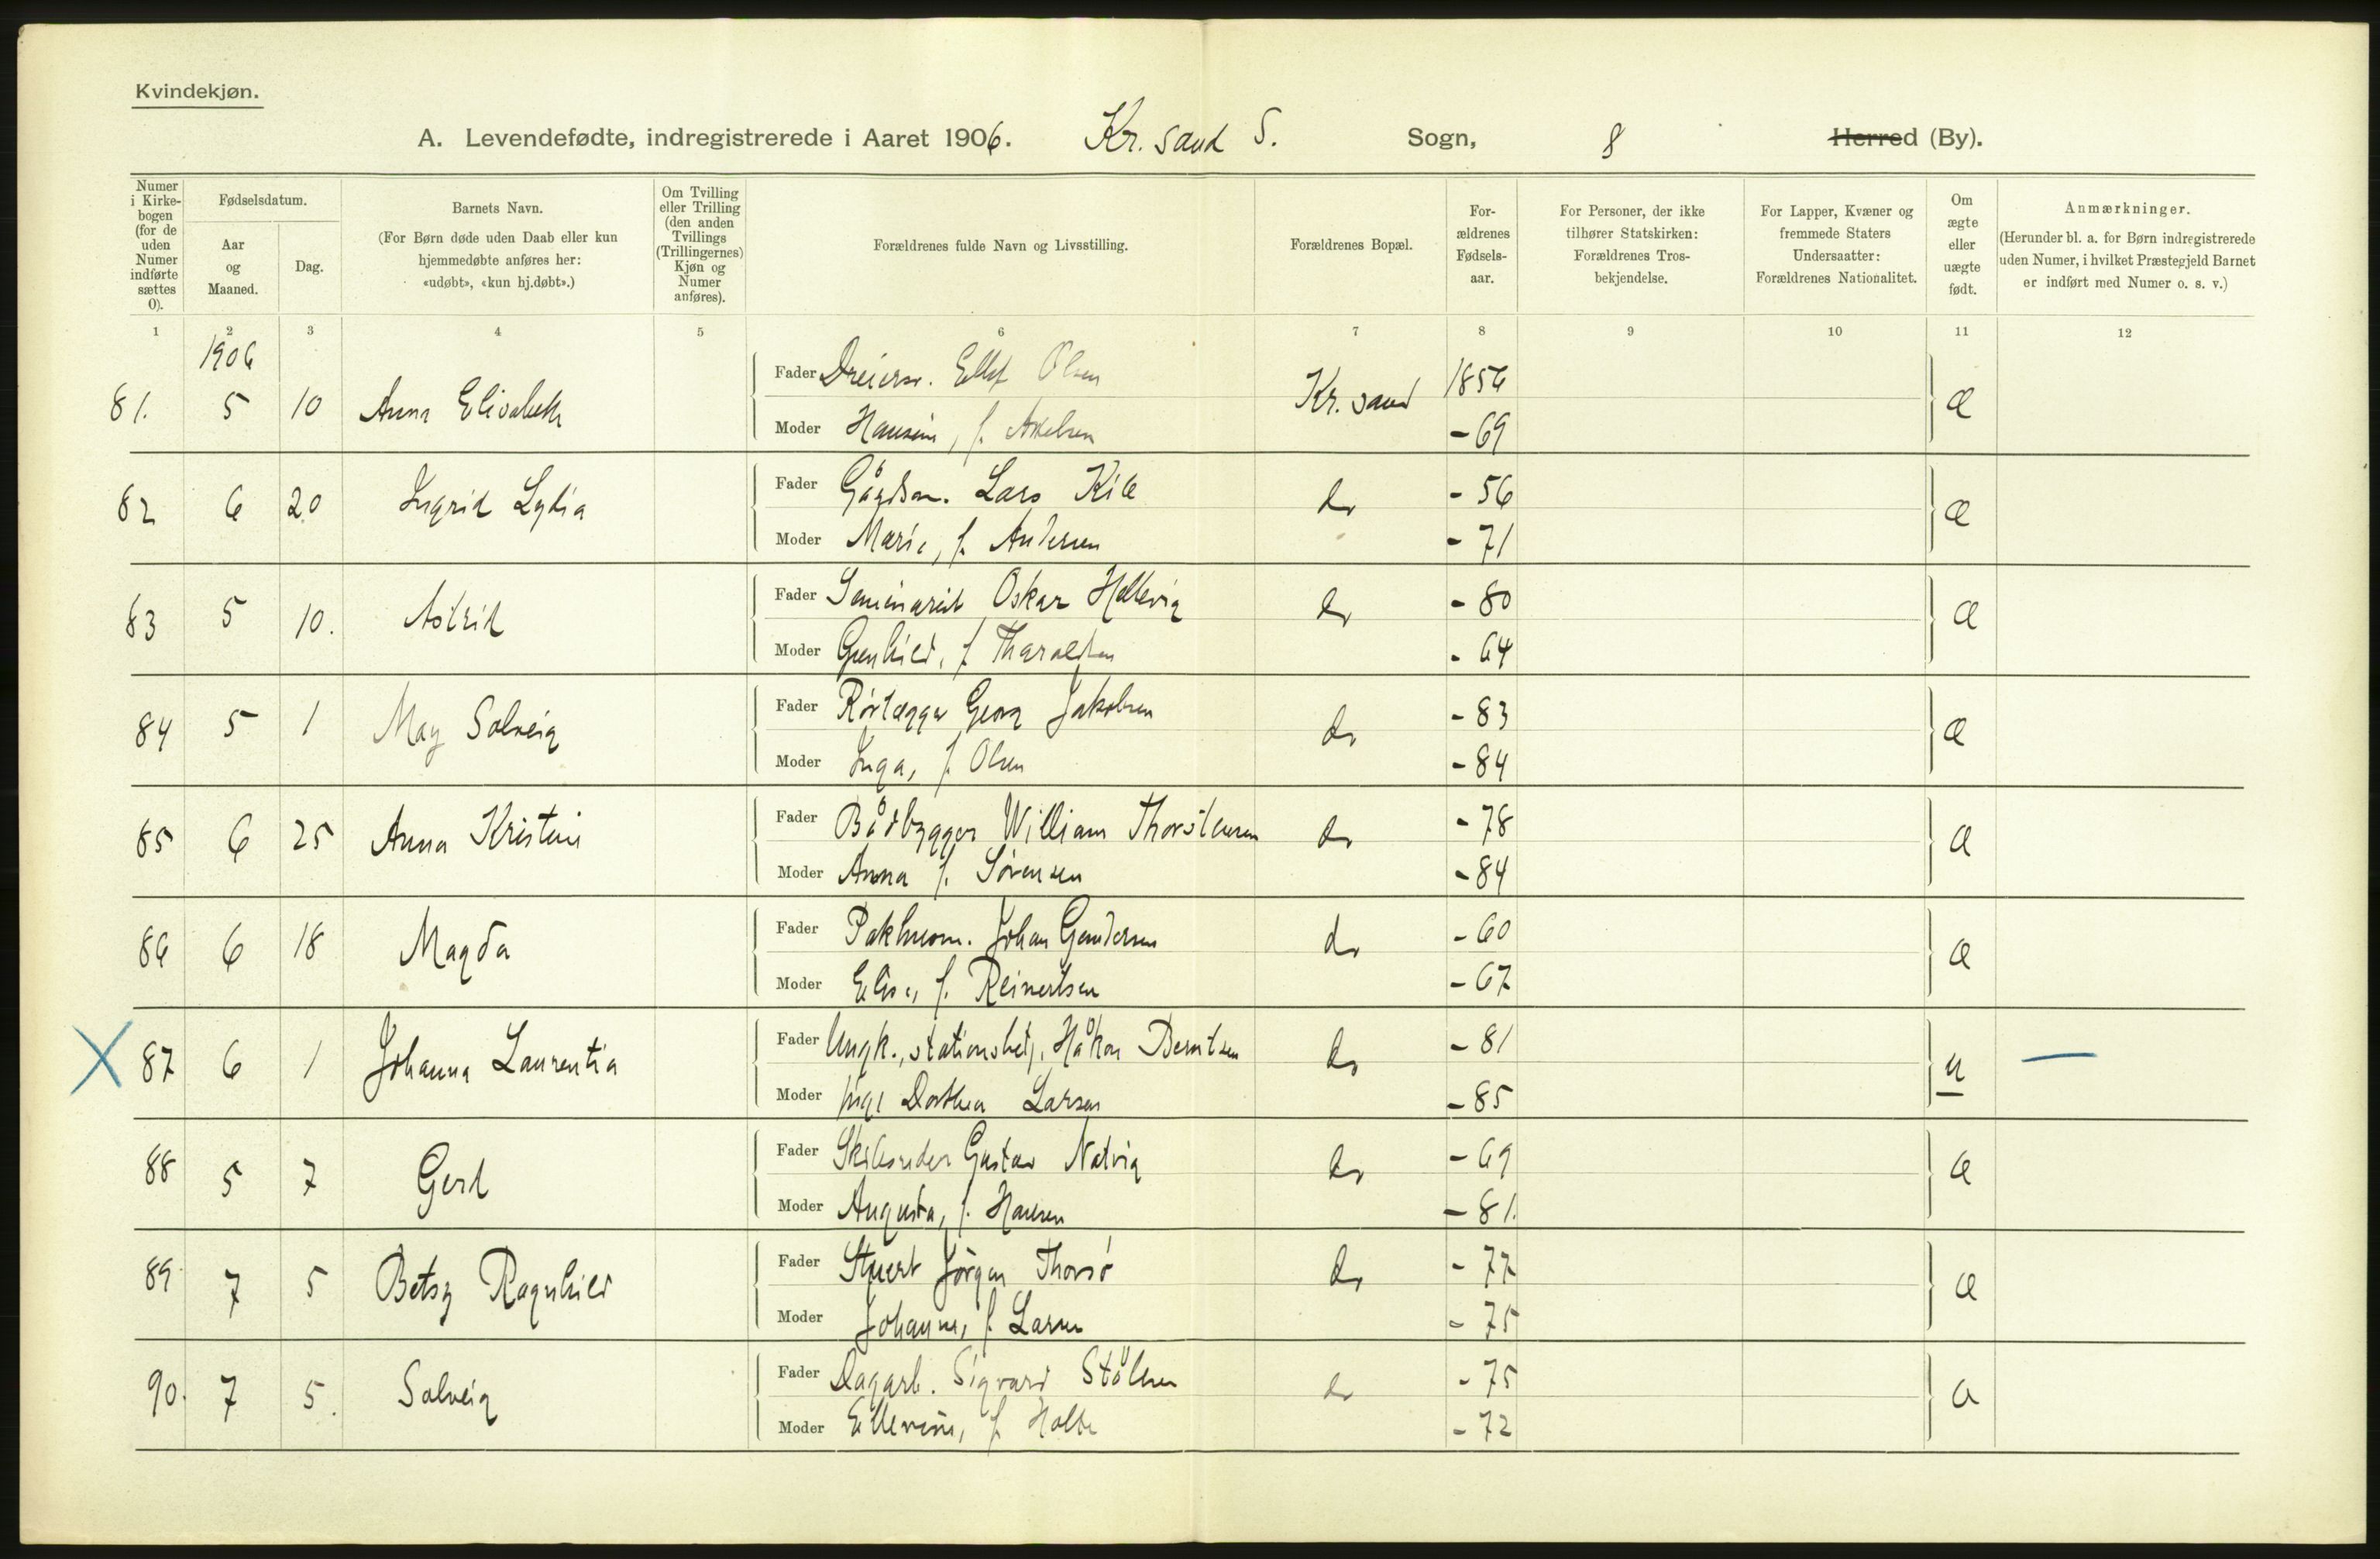 Kvindekjøn.
A. Levendefødte, indregistrerede i Aaret 1906. Kr. sand S. Sogn, 8 Herred (By).
Numer i Kirkebogen (for de uden Numer indførte sættes 0).
Fødselsdatum.
Aar og Maaned.
Dag.
Barnets Navn.
(For Børn døde uden Daab eller kun hjemmedøbte anføres her: «udøbt», «kun hj.døbt».)
Om Tvilling eller Trilling (den anden Tvillings (Trillingernes) Kjøn og Numer anføres).
Forældrenes fulde Navn og Livsstilling.
Forældrenes Bopæl.
Forældrenes Fødselsaar.
For Personer, der ikke tilhører Statskirken: Forældrenes Trosbekjendelse.
For Lapper, Kvæner og fremmede Staters Undersaatter: Forældrenes Nationalitet.
Om ægte eller uægte født.
Anmærkninger.
(Herunder bl. a. for Børn indregistrerede uden Numer, i hvilket Præstegjeld Barnet er indført med Numer o. s. v.)
1 2 3 4 5 6 7 8 9 10 11 12
1906
81. 5 10 Anna Elisabeth Fader Dreiersv. Ellef Olsen Kr. sand 1856 æ
Moder Hansine, f. Axelsen - 69
82 6 20 Ingrid Lydia Fader Gårdsm. Lars Kile do - 56 æ
Moder Marie, f. Andersen - 71
83 5 10. Astrid Fader Seminarist Oskar Hellevig do - 80 æ
Moder Gunhild, f. Tharaldsen - 64
84 5 1 May Solveig Fader Rørlægger Georg Jakobsen do - 83 æ
Moder Inga, f. Olsen - 84
85 6 25 Anna Kristine Fader Bådbygger William Thorstensen do - 78 æ
Moder Anna f. Sørensen - 84
86 6 18 Magda Fader Pakhusm. Johan Gundersen do - 60 æ
Moder Elise, f. Reinertsen - 67
X 87 6 1 Johanna Laurentia Fader Ungk., stationsbetj. Håkon Berntsen do - 81 u —
Moder Pige Dorthea Larsen - 85
88 5 7 Gerd Fader Gustav Natvig do - 69 æ
Moder Augusta, f. Hansen - 81.
89 7 5 Betsy Ragnhild Fader Stuert Jörgen Thorsø do - 77 æ
Moder Johanne, f. Larsen - 75
90. 7 5. Solveig Fader Dagarb. Sigvard Stålsen do - 75 æ
Moder Ellevine, f. Holte - 72